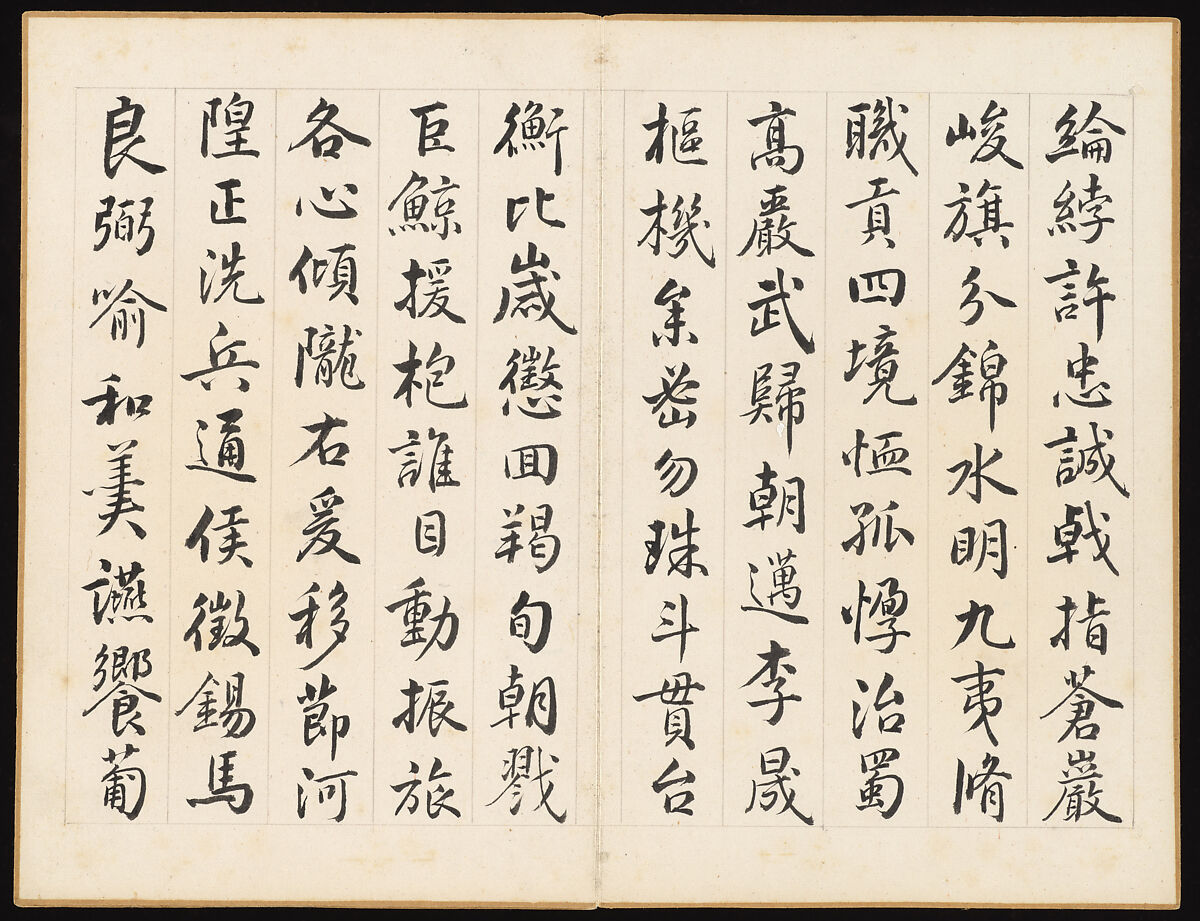 綸綍許忠誠戟指蒼巖
峻旗分錦水明九夷脩
職貢四境恤孤惸治蜀
高嚴武歸朝邁李晟
樞機叅密勿珠斗貫台
衡比歲懲囬羯旬朝戮
巨鯨援枹誰目動振旅
各心傾隴右爰移節河
隍正洗兵通侯徵錫馬
良弼喻和羹讌饗葡